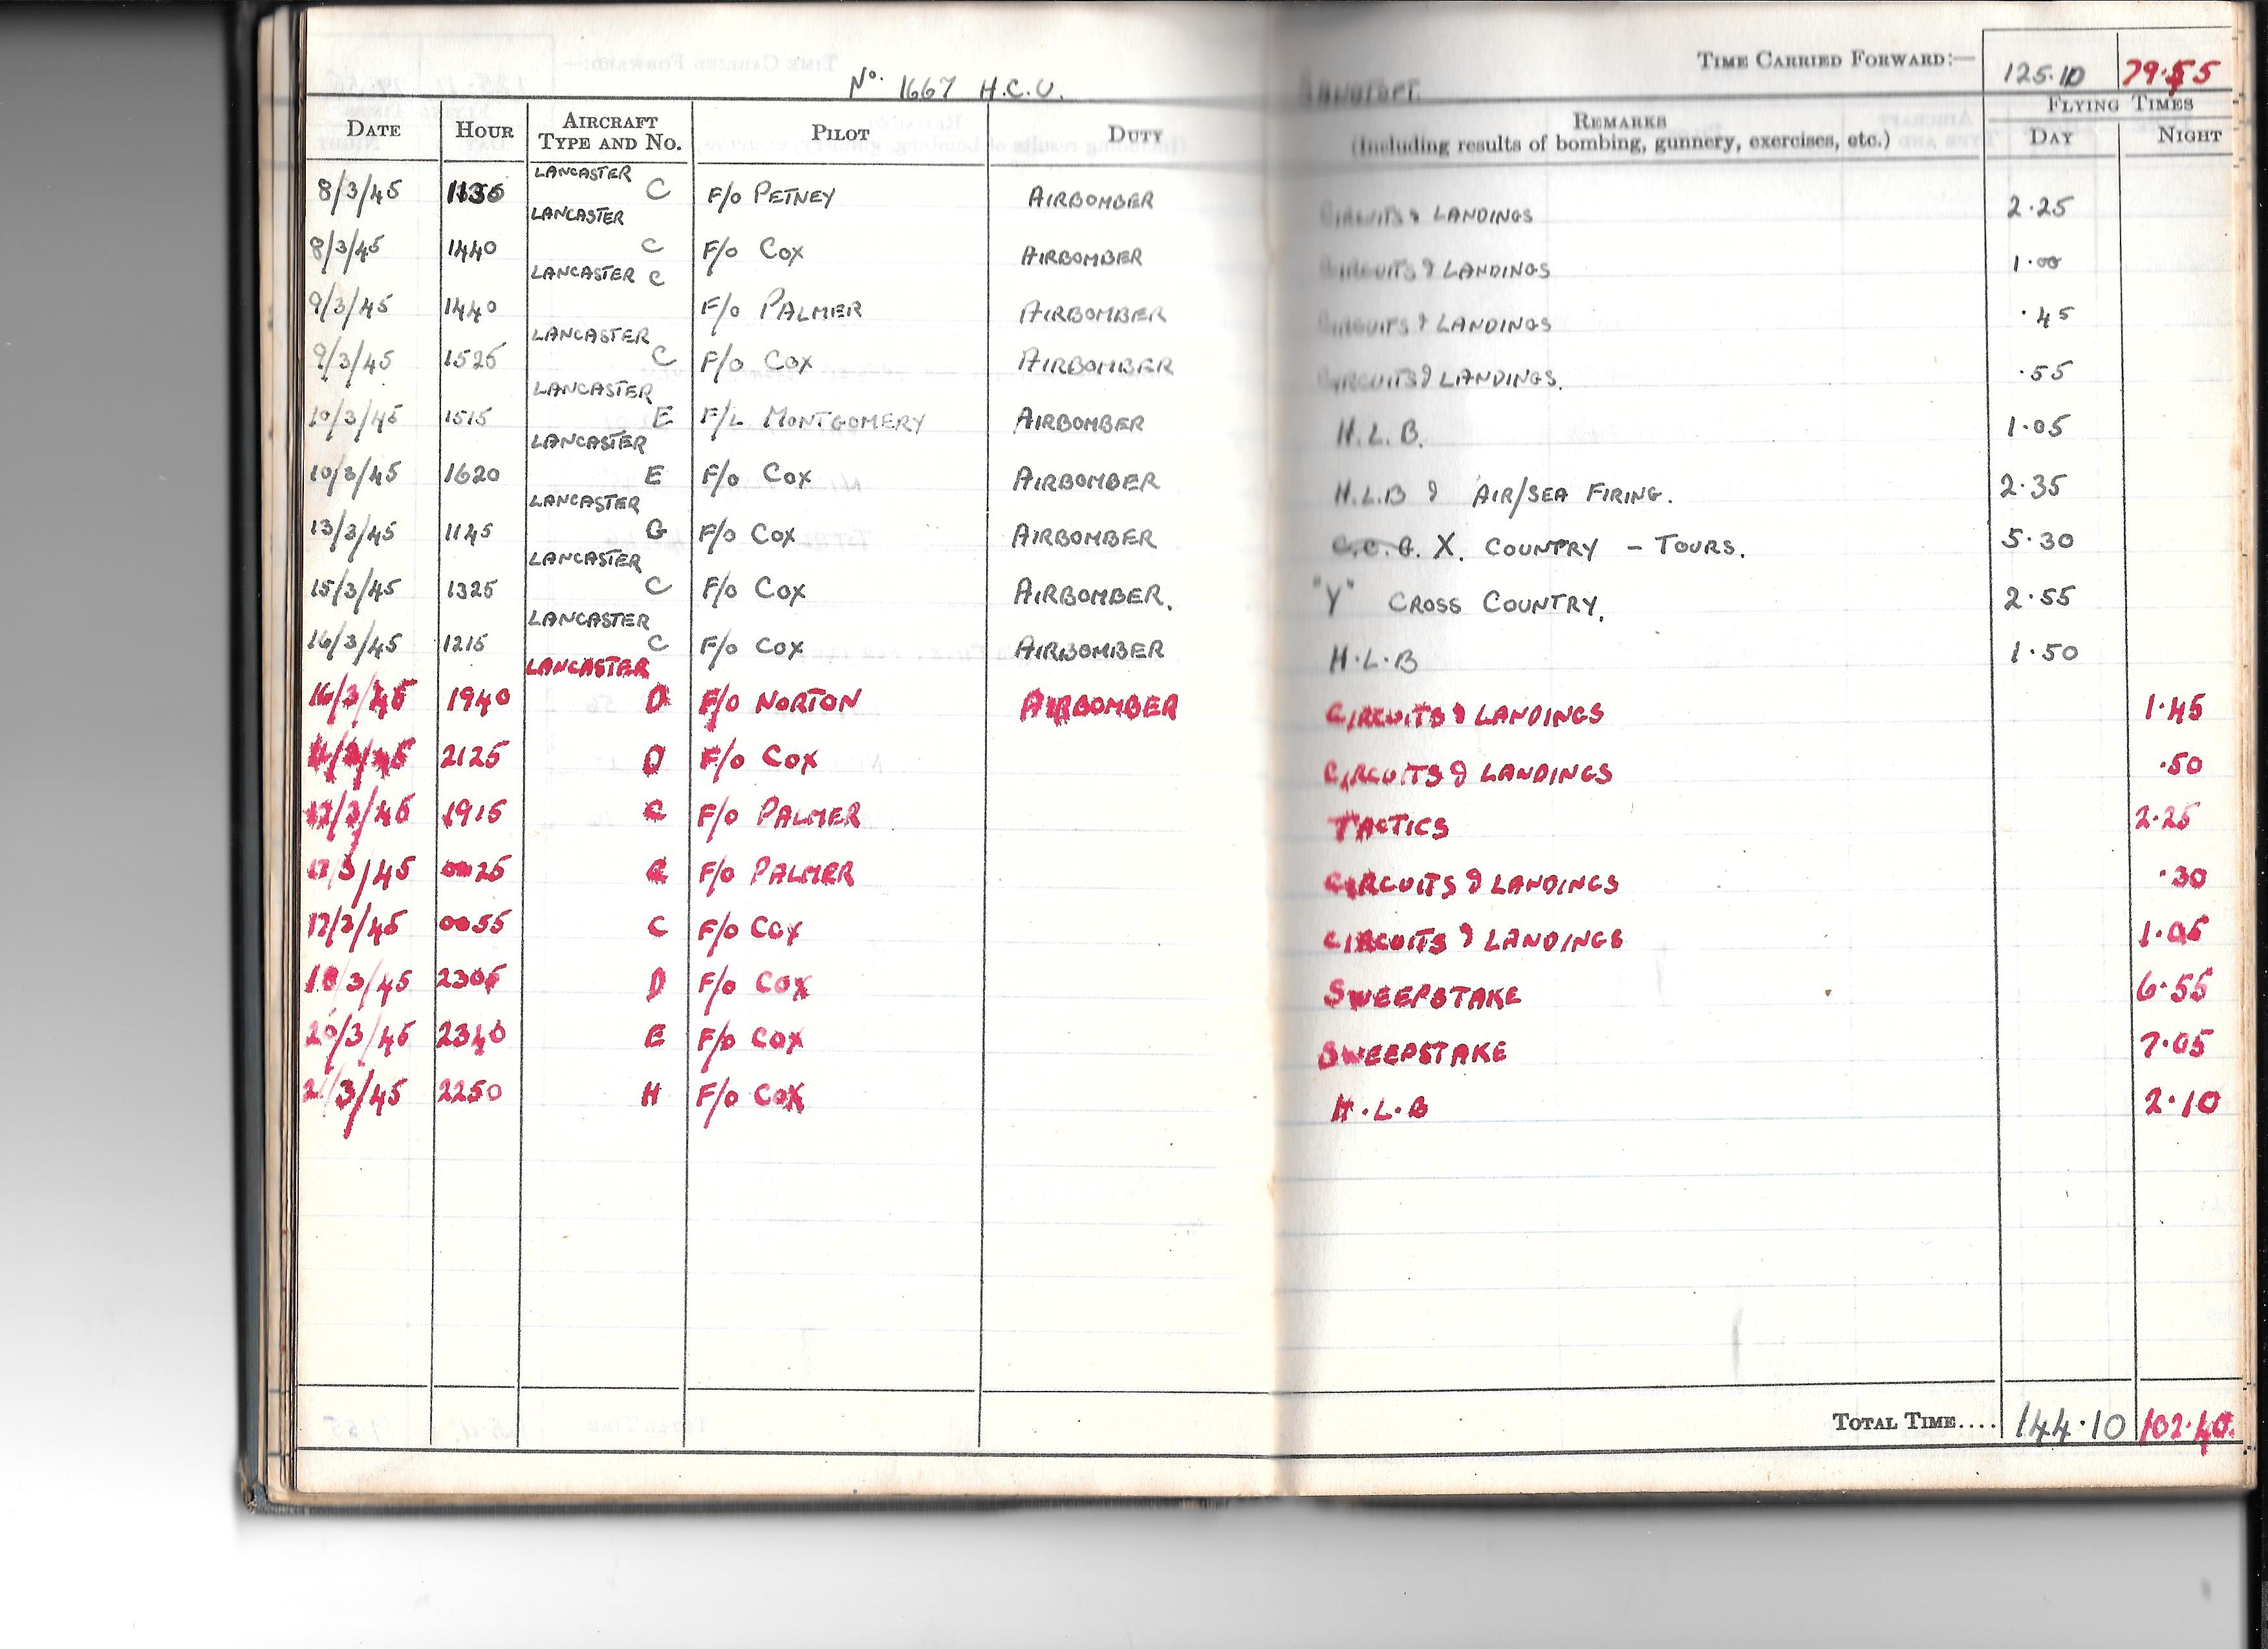 No. 1667 H.C.U. TIME CARRIED FORWARD:— 125.10 79.55
DATE HOUR AIRCRAFT TYPE AND NO. PILOT DUTY REMARKS (Including results of bombing, gunnery, exercises, etc.) FLYING TIMES DAY NIGHT
8/3/45 LANCASTER C F/O PETNEY AIRBOMBER CIRCUITS & LANDINGS 2.25
8/3/45 1440 LANCASTER C F/O COX AIRBOMBER CIRCUITS & LANDINGS 1.00
9/3/45 1440 LANCASTER C F/O PALMER AIRBOMBER CIRCUITS & LANDINGS .45
9/3/45 1525 LANCASTER C F/O COX AIRBOMBER CIRCUITS & LANDINGS. .55
10/3/45 1515 LANCASTER E F/L MONTGOMERY AIRBOMBER H.L.B. 1.05
10/3/45 1620 LANCASTER E F/O COX AIRBOMBER H.L.B & AIR/SEA FIRING. 2.35
13/3/45 1145 LANCASTER G F/O COX AIRBOMBER X. COUNTRY - TOURS. 5.30
15/3/45 1325 LANCASTER C F/O COX AIRBOMBER. "Y" CROSS COUNTRY. 2.55
16/3/45 1215 LANCASTER C F/O COX AIRBOMBER H.L.B 1.50
16/3/45 1940 LANCASTER D F/O NORTON AIRBOMBER CIRCUITS & LANDINGS 1.45
2125 D F/O COX CIRCUITS & LANDINGS .50
17/3/45 1915 C F/O PALMER TACTICS 2.25
17/3/45 0025 C F/O PALMER CIRCUITS & LANDINGS .30
17/3/45 0055 C F/O COX CIRCUITS & LANDINGS 1.05
2305 D F/O COX SWEEPSTAKE 6.55
20/3/45 2340 E F/O COX SWEEPSTAKE 7.05
2250 H F/O COX H.L.B 2.10
TOTAL TIME.... 144.10 102.40.